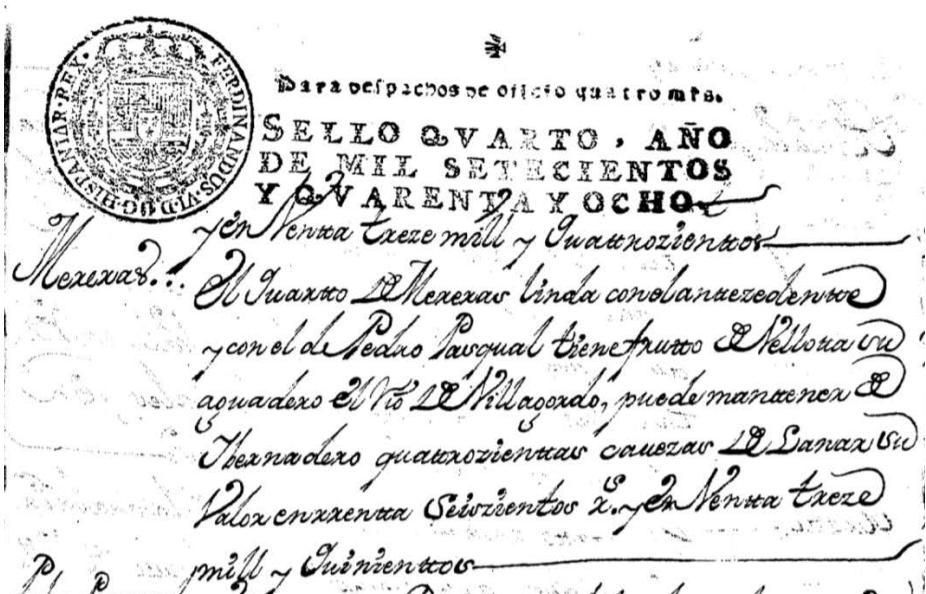 FERDINANDUS·VI·D·G·HISPANIAR·REX·
Para despachos de oficio quatro mrs.
SELLO QVARTO, AÑO
DE MIL SETECIENTOS
Y QVARENTA Y OCHO.
y en Ventta treze mill y Quattrozienttos
Mereras... el Quartto de Mereras linda con el antezedentte
y con el de Pedro Pasqual tiene frutto de Vellotta su
aguadero el Rio de Villagordo, puede mantener de
Ibernadero quattrozienttas cauezas de Lanar su
Valor en rrentta Seiszientos Rs. y en Ventta treze
mill y Quinienttos